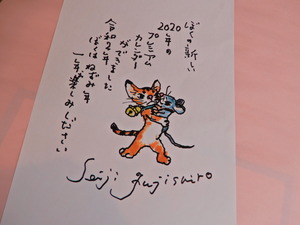 ぼくの新しい
2020年の
プレミアム
カレンダー
ができました
令和2年
ぼくはねずみ年
一年楽しみください
Seiji Fujishiro